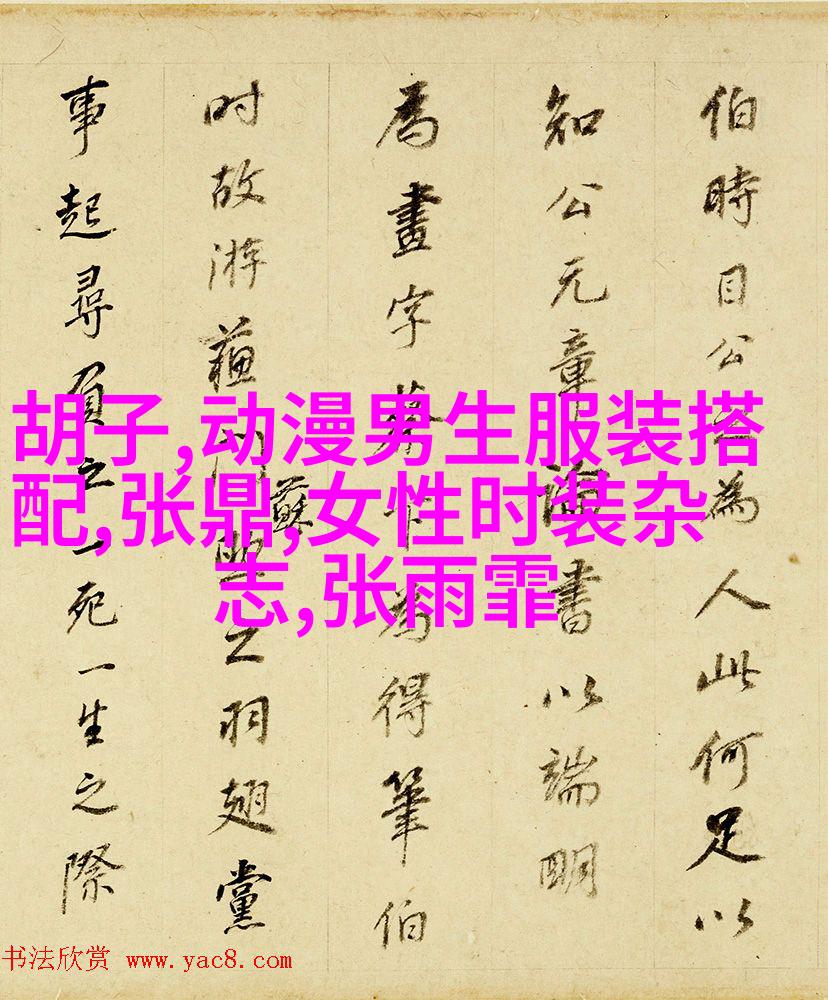 伯時目公為人此何足以
知公元章書以端明
為畫字為得筆伯
时故游蘓之羽翅黨
蘇
事起尋負之一死一生之際
胡子,动漫男生服装搭
配,张鼎,女性时装杂
志,张雨霏
书法欣赏 www.yac8.com